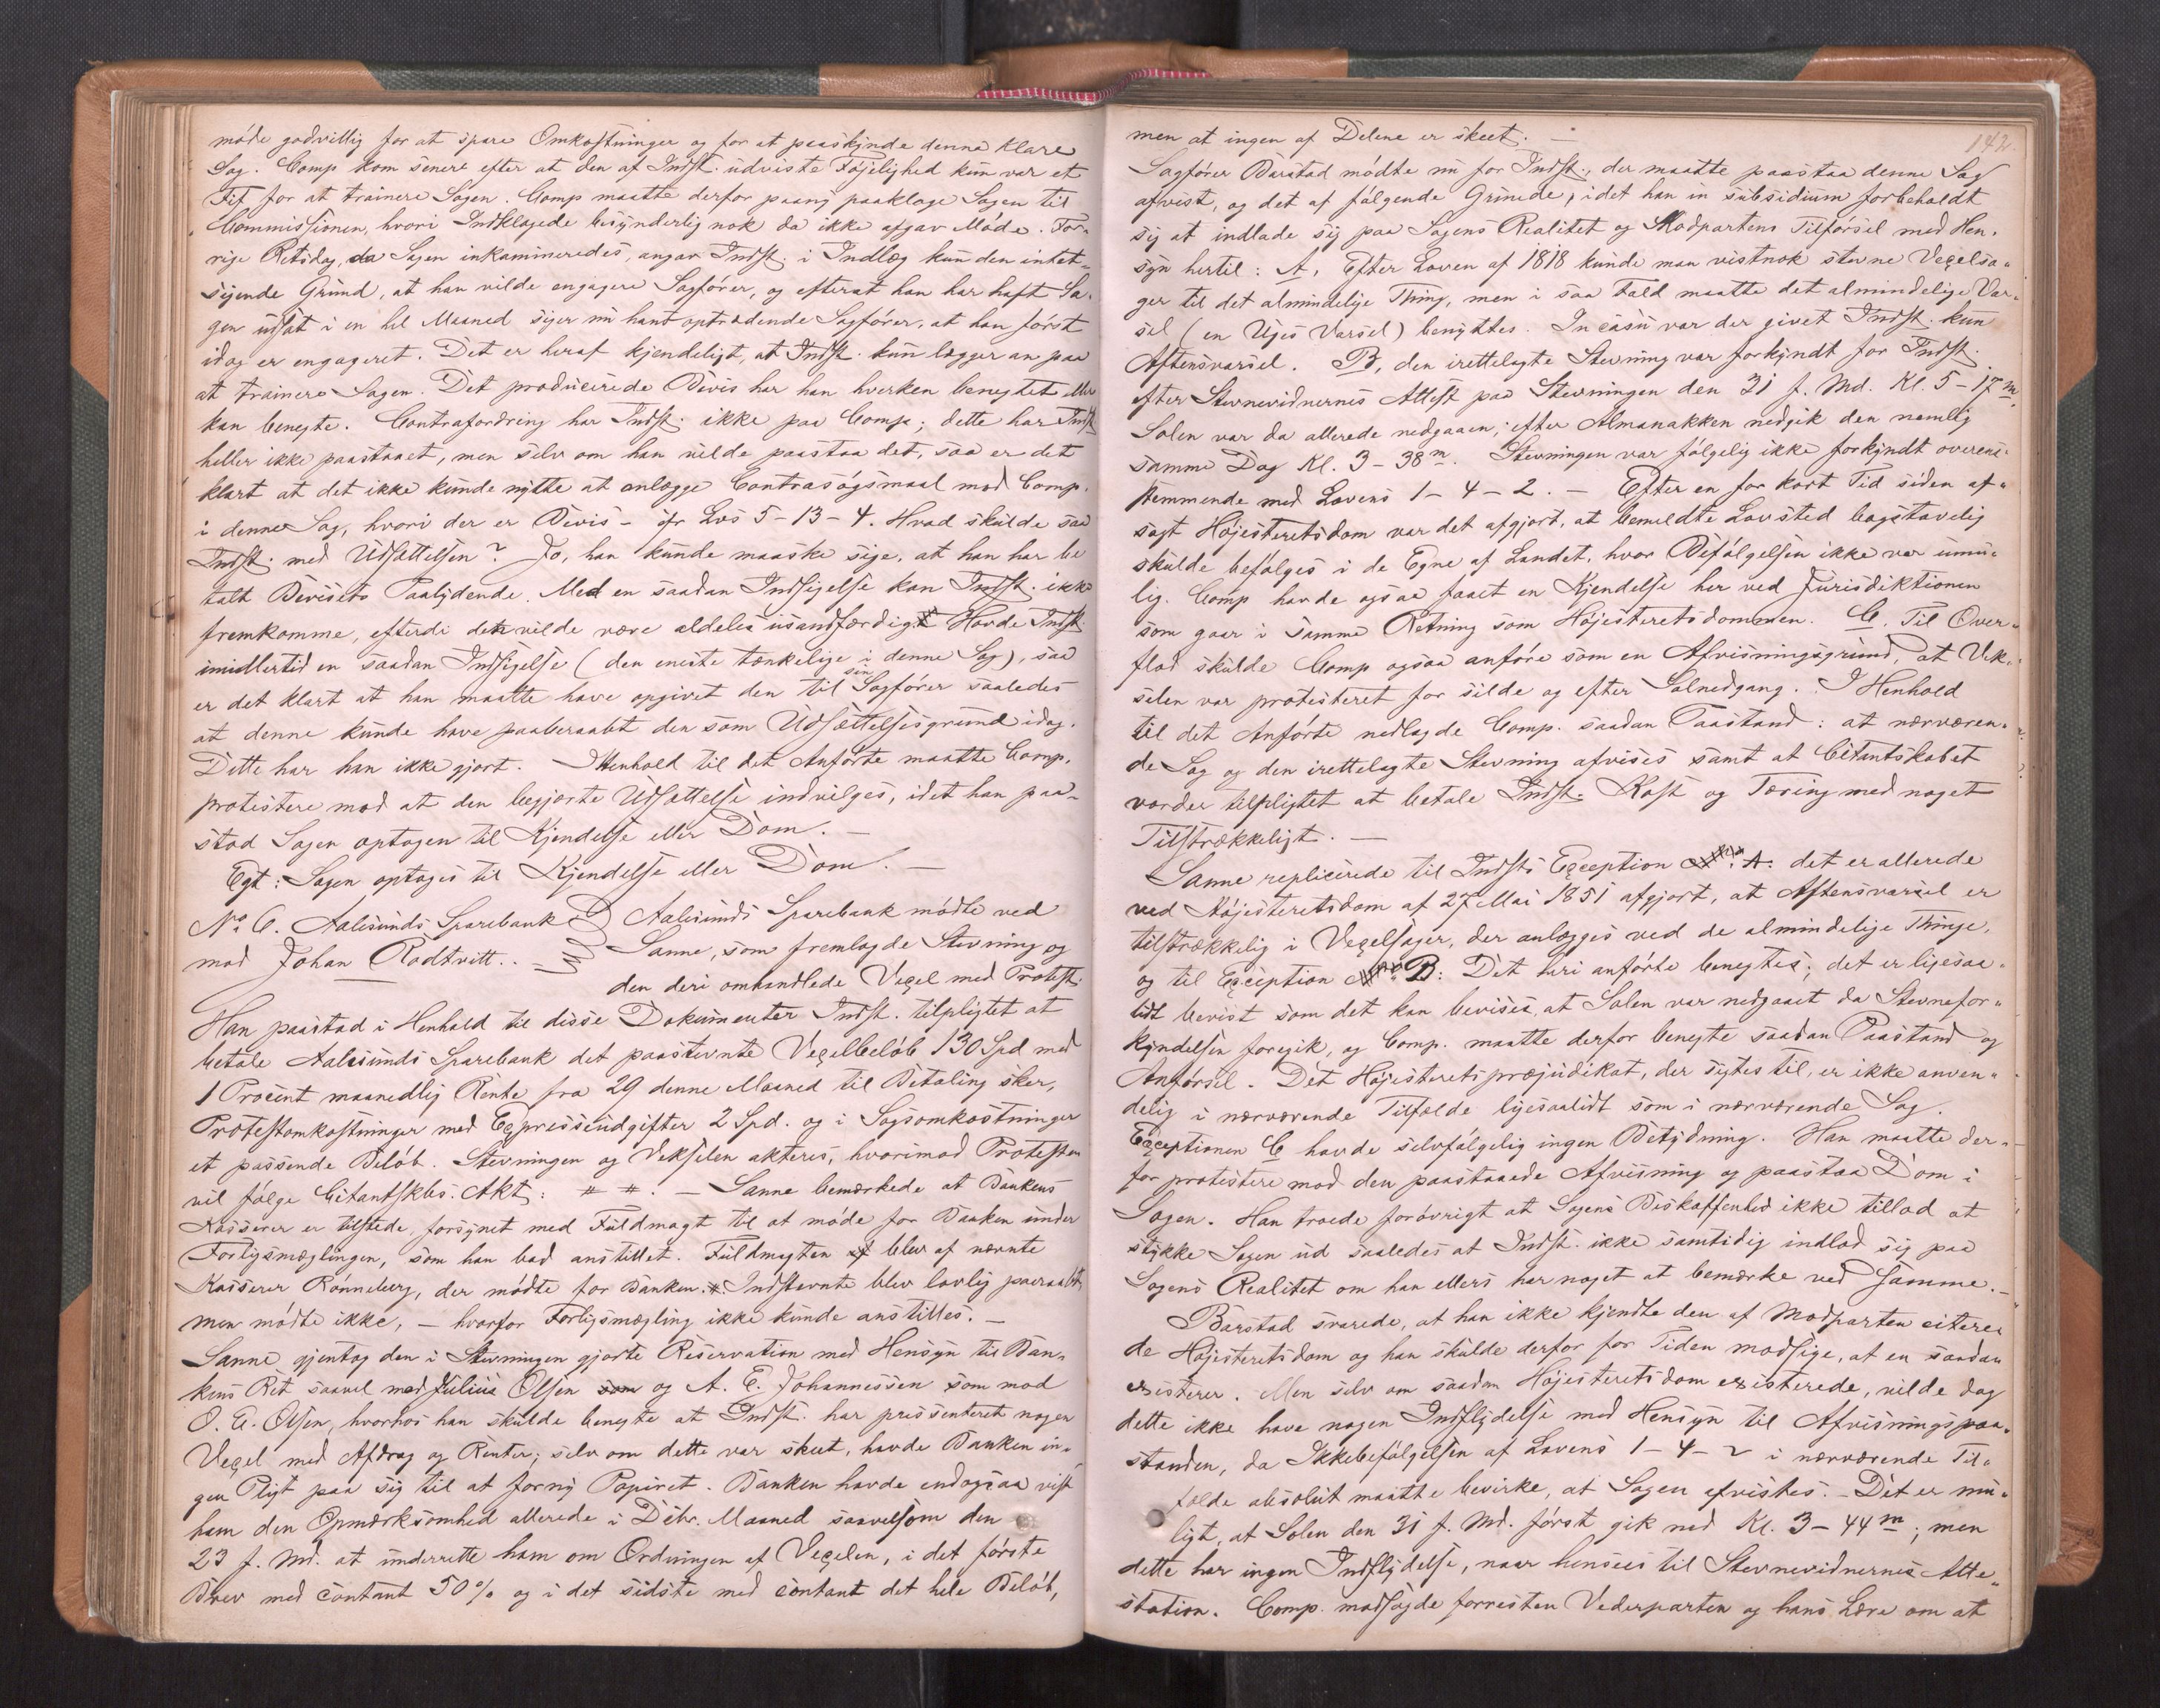 møde godvillig for at spare Omkostninger og for at paaskynde denne klare
Sag. Comp kom senere efter at den af Indst. udviste Føjelighed kun var et
Fif for at trainere Sagen. Comp maatte derfor paany paaklage Sagen til
Commissionen, hvori Indklagede besynderlig nok da ikke afgav Møde. For-
rige Retsdag, da Sagen inkamineredes, angav Indst. i Indlæg kun den intet-
sigende Grund, at han vilde engagere Sagfører, og efterat han har haft Sa-
gen udsat i en hel Maaned siger nu hans optrædende Sagfører, at han først
idag er engageret. Det er heraf kjendeligt, at Indst. kun lægger an paa
at trainere Sagen. Det producerede Bevis har han hverken benegtet eller
kan benegte. Contrafordring har Indst. ikke paa Comp; dette har Indst
heller ikke paastaaet, men selv om han vilde paastaa det, saa er det
klart at det ikke kunde nytte at anlægge Contrasøgsmaal mod Comp.
i denne Sag, hvori der er Bevis - cfr Lvs 5-13-4. Hvad skulde saa
Indst. med Udsættelsen? Jo, han kunde maaske sige, at han har be
talt Bevisets Paalydende. Med en saadan Indsigelse kan Indst. ikke
fremkomme, efterdi den vilde være aldeles usandfærdig. Havde Indst.
imidlertid en saadan Indsigelse (den eneste tænkelige i denne Sag), saa
er det klart at han maatte have opgivet den til sin Sagfører saaledes
at denne kunde have paaberaabt den som Udsættelsesgrund idag.
Dette har han ikke gjort. I Henhold til det Anførte maatte Comp.
protestere mod at den begjærte Udsættelse indvilges, idet han paa-
stod Sagen optagen til Kjendelse eller Dom. -
Egt: Sagen optages til Kjendelse eller Dom. -
No 6. Aalesunds Sparebank Aalesunds Sparebank mødte ved
mod Johan Rødtvitt. - Sanne, som fremlagde Stevning og
den deri omhandlede Vexel med Protest.
Han paastod i Henhold til disse Dokumenter Indst. tilpligtet at
betale Aalesunds Sparebank det paastevnte Vexelbeløb 130 Spd med
1 Procent maanedlig Rente fra 29 denne Maaned til Betaling sker,
Protestomkostninger med Expresseudgifter 2 Spd. og i Sagsomkostninger
et passende Beløb. Stevningen og Vekselen akteres, hvorimod Protesten
vil følge Citantskbs. Akt: # #. - Sanne bemærkede at Bankens
Kasserer er tilstede, forsynet med Fuldmagt til at møde for Banken under
Forligsmæglingen, som han bad anstillet. Fuldmagten blev af nævnte
Kasserer Rønneberg, der mødte for Banken. #. Indstevnte blev lovlig paaraabt,
men mødte ikke, - hvorfor Forligsmægling ikke kunde anstilles. -
Sanne gjentog den i Stevningen gjorte Reservation med Hensyn til Ban-
kens Ret saavel mod Julius Olsen som og A. E. Johannessen som mod
O. A. Olsen, hvorhos han skulde benegte at Indst. har presenteret nogen
Vexel med Afdrag og Renter; selv om dette var skeet, havde Banken in-
gen Pligt paa sig til at forny Papiret. Banken havde endogsaa vist
ham den Opmærksomhed allerede i Decbr. Maaned saavelsom den
23 f. Md. at underrette ham om Ordningen af Vexelen, i det første
Brev med contant 50 % og i det sidste med contant det hele Beløb,
142.
men at ingen af Delene er skeet. -
Sagfører Barstad mødte nu for Indst., der maatte paastaa denne Sag
afvist, og det af følgende Grunde, idet han in subsidium forbeholdt
sig at indlade sig paa Sagens Realitet og Modpartens Tilførsel med Hen-
syn hertil: A, Efter Loven af 1818 kunde man vistnok stevne Vexelsa-
ger til det almindelige Thing, men i saa Fald maatte det almindelige Var-
sel (en Uges Varsel) benyttes. In casu var der givet Indst. kun
Aftensvarsel. B, den irettelagte Stevning var forkyndt for Indst.
efter Stevnevidnernes Attest paa Stevningen den 31 f. Md. Kl. 5-17 m.
Solen var da allerede nedgaaen; efter Almanakken nedgik den nemlig
samme Dag Kl. 3-38 m. Stevningen var følgelig ikke forkyndt overens-
stemmende med Lovens 1-4-2. - Efter en for kort Tid siden af-
sagt Højesteretsdom var det afgjort, at bemeldte Lovsted bogstavelig
skulde befølges i de Egne af Landet, hvor Befølgelsen ikke var umu-
lig. Comp havde ogsaa faaet en Kjendelse her ved Jurisdiktionen
som gaar i samme Retning som Højesteretsdommen. C. Til Over-
flod skulde Comp ogsaa anføre som en Afvisningsgrund, at Vek-
selen var protesteret for silde og efter Solnedgang. I Henhold
til det Anførte nedlagde Comp. saadan Paastand: at nærværen-
de Sag og den irettelagte Stevning afvises samt at Citantskabet
vorder tilpligtet at betale Indst. Kost og Tæring med noget
Tilstrækkeligt. -
Sanne replicerede til Indsts Exception A: det er allerede
ved Højesteretsdom af 27 Mai 1851 afgjort, at Aftensvarsel er
tilstrækkelig i Vexelsager, der anlægges ved de almindelige Thinge,
og til Exception B: Det heri anførte benegtes; det er ligesaa-
lidt bevist som det kan bevises, at Solen var nedgaaet da Stevnefor-
kyndelsen foregik, og Comp. maatte derfor benegte saadan Paastand og
Anførsel. Det Højesteretspræjudikat, der sigtes til, er ikke anven-
delig i nærværende Tilfælde ligesaalidt som i nærværende Sag.
Exceptionen C havde selvfølgelig ingen Betydning. Han maatte der-
for protestere mod den paastaaede Afvisning og paastaa Dom i
Sagen. Han troede forøvrigt at Sagens Beskaffenhed ikke tillod at
stykke Sagen ud saaledes at Indst. ikke samtidig indlod sig paa
Sagens Realitet om han ellers har noget at bemærke ved samme. -
Barstad svarede, at han ikke kjendte den af Modparten citere-
de Højesteretsdom og han skulde derfor for Tiden modsige, at en saadan
existerer. Men selv om saadan Højesteretsdom existerede, vilde dog
dette ikke have nogen Indflydelse med Hensyn til Afvisningspaa-
standen, da Ikkebefølgelsen af Lovens 1-4-2 i nærværende Til-
fælde absolut maatte bevirke, at Sagen afvistes. - Det er mu-
ligt, at Solen den 31 f. Md. først gik ned Kl. 3-44 m; men
dette har ingen Indflydelse, naar hensees til Stevnevidnernes Atte-
station. Comp. modsagde forresten Vederparten og hans Lære om at